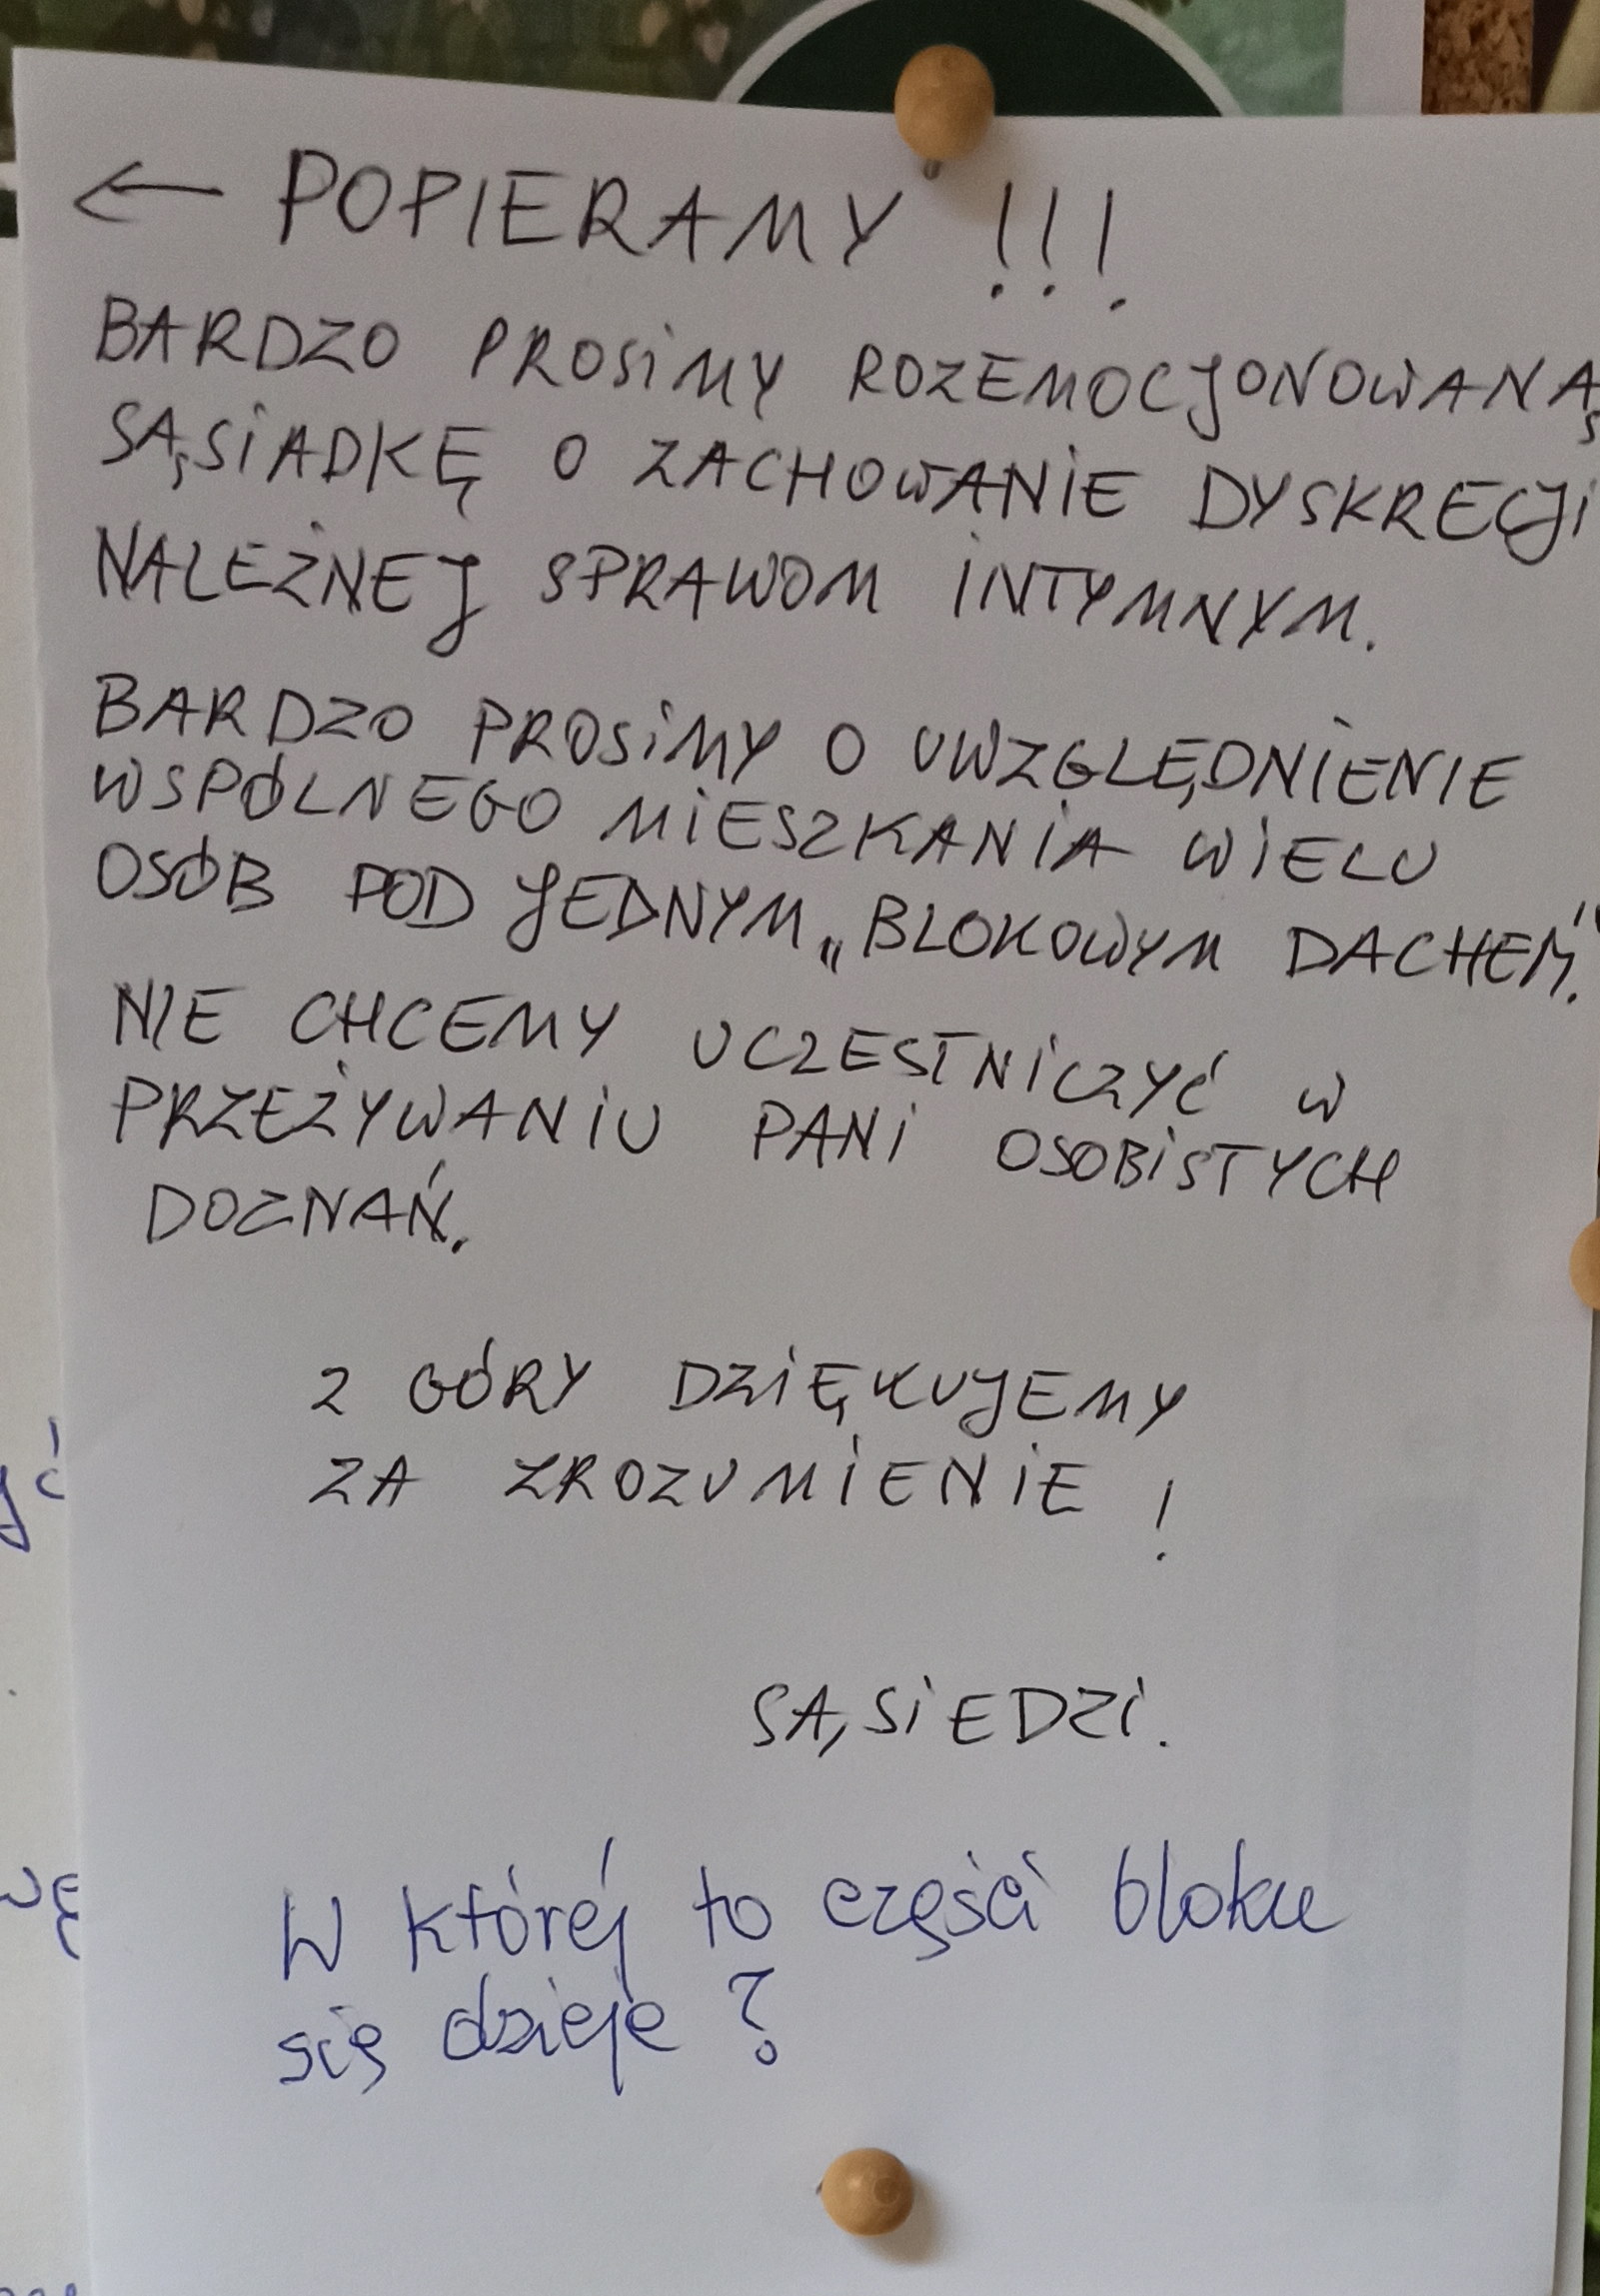 ← POPIERAMY !!!
BARDZO PROSIMY ROZEMOCJONOWANĄ
SĄSIADKĘ O ZACHOWANIE DYSKRECJI
NALEŻNEJ SPRAWOM INTYMNYM.
BARDZO PROSIMY O UWZGLĘDNIENIE
WSPÓLNEGO MIESZKANIA WIELU
OSÓB POD JEDNYM „BLOKOWYM DACHEM".
NIE CHCEMY UCZESTNICZYĆ W
PRZEŻYWANIU PANI OSOBISTYCH
DOZNAŃ.
Z GÓRY DZIĘKUJEMY
ZA ZROZUMIENIE !
SĄSIEDZI.
W której to części bloku
się dzieje ?